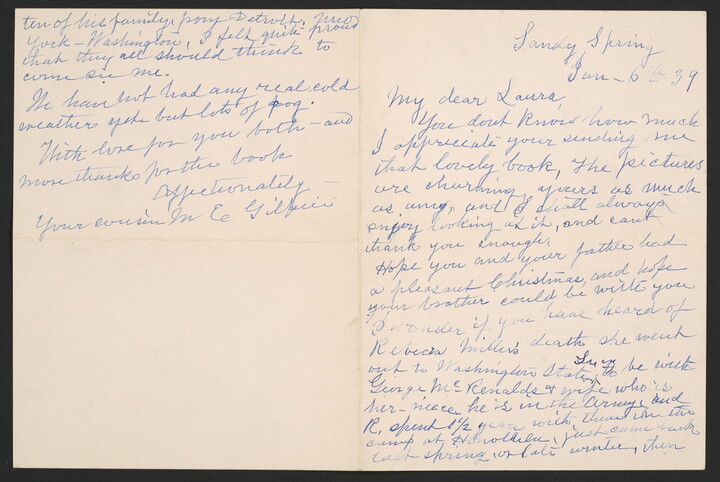 Sandy Spring
Jan - 6th 39
My dear Laura,
You dont know how much
I appreciate your sending me
that lovely book, The pictures
are charming, yours as much
as any, and I shall always
enjoy looking at it, and cant
thank you enough.
Hope you and your father had
a pleasant Christmas, and hope
your brother could be with you
I wonder if you have heard of
Rebecca Miller's death she went
out to Washington State, to be with
George McRenalds & wife who is
her - niece he is in the Army, and
R, spent 1½ year with them in the
camp at Honolulu, just came back
last spring or late winter, then
ten of his family, from Detroit, New
York - Washington, I felt quite proud
that they all should think to
come see me.
We have not had any real cold
weather yet but lots of fog.
With love for you both - and
more thanks for the book
Affectionately
Your cousin M E Gilpin